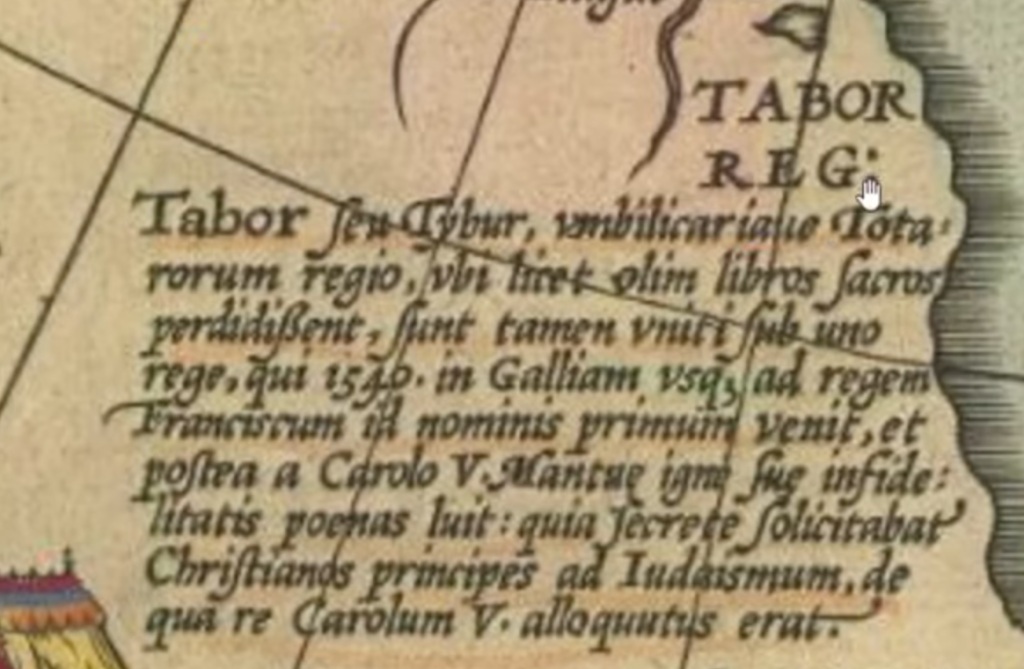 TABOR
REG:
Tabor ſeu Tybur, vmbilicariaue Tota:
rorum regio, vbi licet olim libros ſacros
perdidißent, ſunt tamen vniti ſub uno
rege, qui 1540. in Galliam vsq, ad regem
Franciscum id nominis primum venit, et
poſtea a Carolo V. Mantuę igni ſuę infide:
litatis poenas luit: quia ſecrete ſolicitabat
Chriſtianos principes ad Iudaismum, de
qua re Carolum V. alloquutus erat.